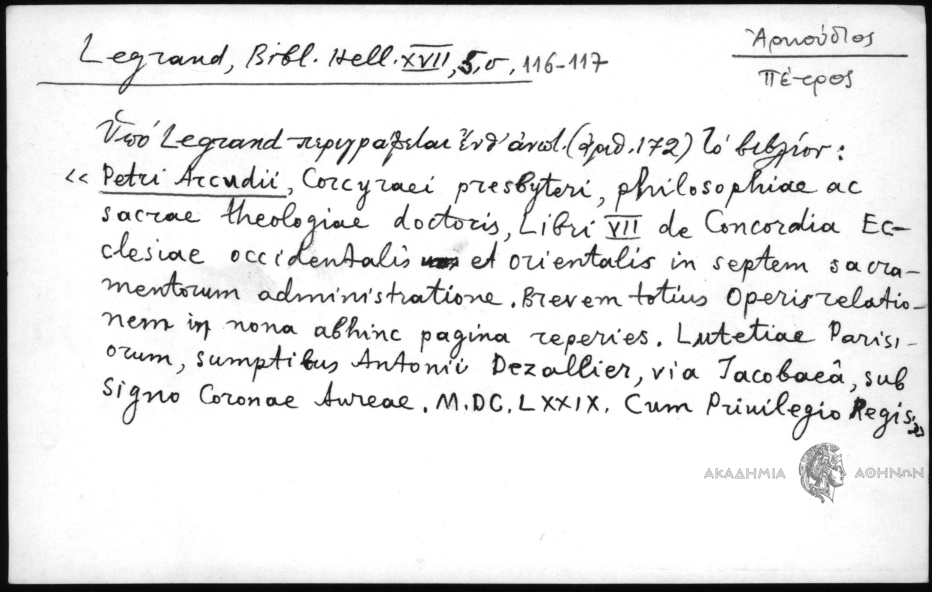 Legrand, Bibl. Hell. XVII, 5, σ. 116-117
Ἀρκούδιος
Πέτρος
Ὑπό Legrand περιγράφεται ἔνθ' ἀνωτ. (ἀριθ. 172) τό βιβλίον:
« Petri Arcudii, Corcyraei presbyteri, philosophiae ac
sacrae theologiae doctoris, Libri VII de Concordia Ec-
clesiae occidentalis et orientalis in septem sacra-
mentorum administratione. Brevem totius Operis relatio-
nem in nona abhinc pagina reperies. Lutetiae Parisi-
orum, sumptibus Antonii Dezallier, via Jacobaeâ, sub
Signo Coronae Aureae. M.DC.LXXIX. Cum Privilegio Regis.»
ΑΚΑΔΗΜΙΑ ΑΘΗΝΩΝ